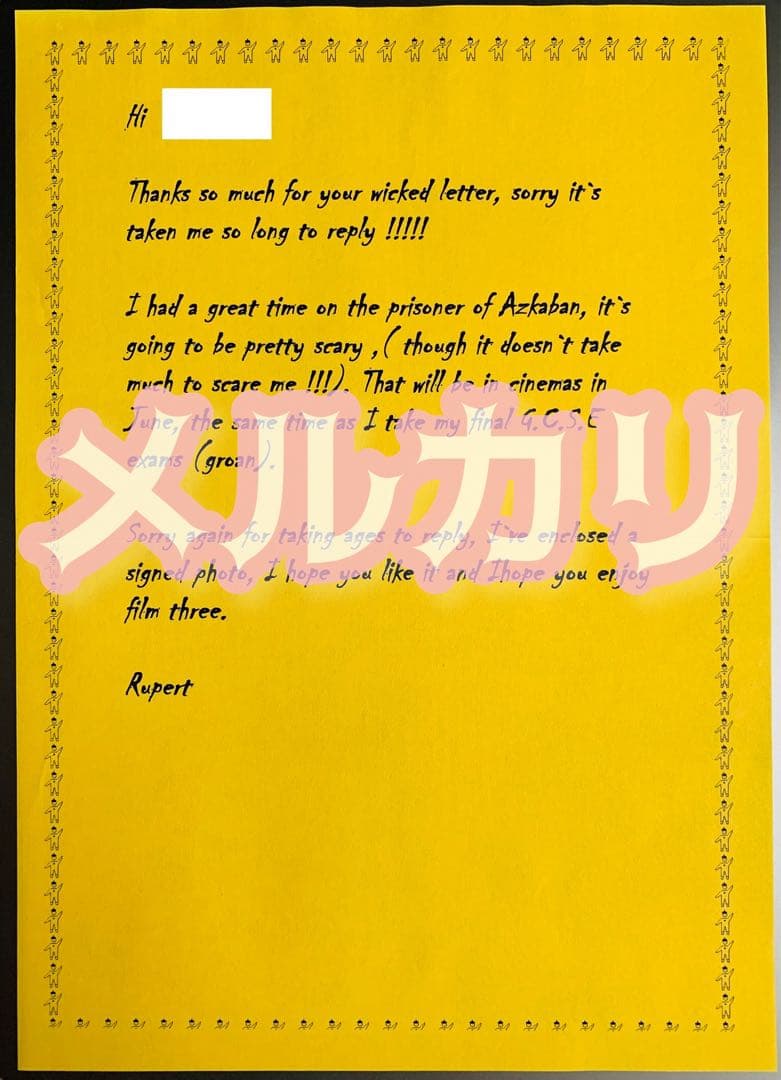 Hi
Thanks so much for your wicked letter, sorry it`s
taken me so long to reply !!!!!
I had a great time on the prisoner of Azkaban, it`s
going to be pretty scary ,( though it doesn`t take
much to scare me !!!). That will be in cinemas in
June, the same time as I take my final G.C.S.E
exams (groan).
メルカリ
Sorry again for taking ages to reply, I`ve enclosed a
signed photo, I hope you like it and Ihope you enjoy
film three.
Rupert